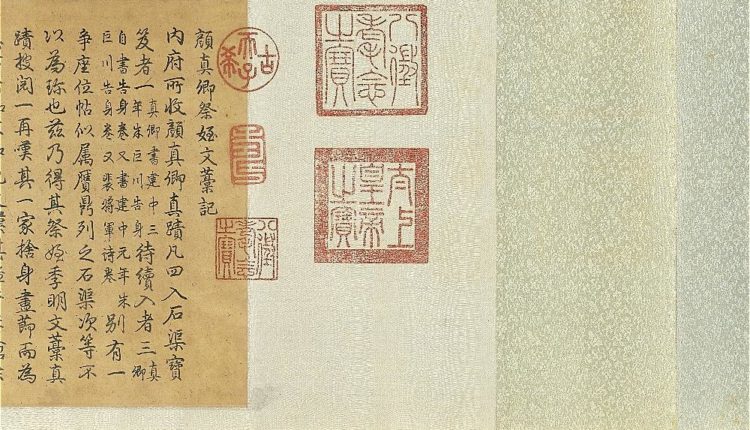 八徵耄念之寶
太上皇帝之寶
古希天子
壽
八徵耄念之寶
顔真卿祭姪文藁記
內府所收顔真卿真蹟凡四入石渠寶
笈者一真卿書建中三年朱巨川告身待續入者三真卿
自書告身卷又書建中元年朱巨川告身卷又裴將軍诗卷别有一
争座位帖似属贋鼎列之石渠次等不
以為珍也兹乃得其祭姪季明文藁真
蹟披閱一再嘆其一家捨身盡節而為